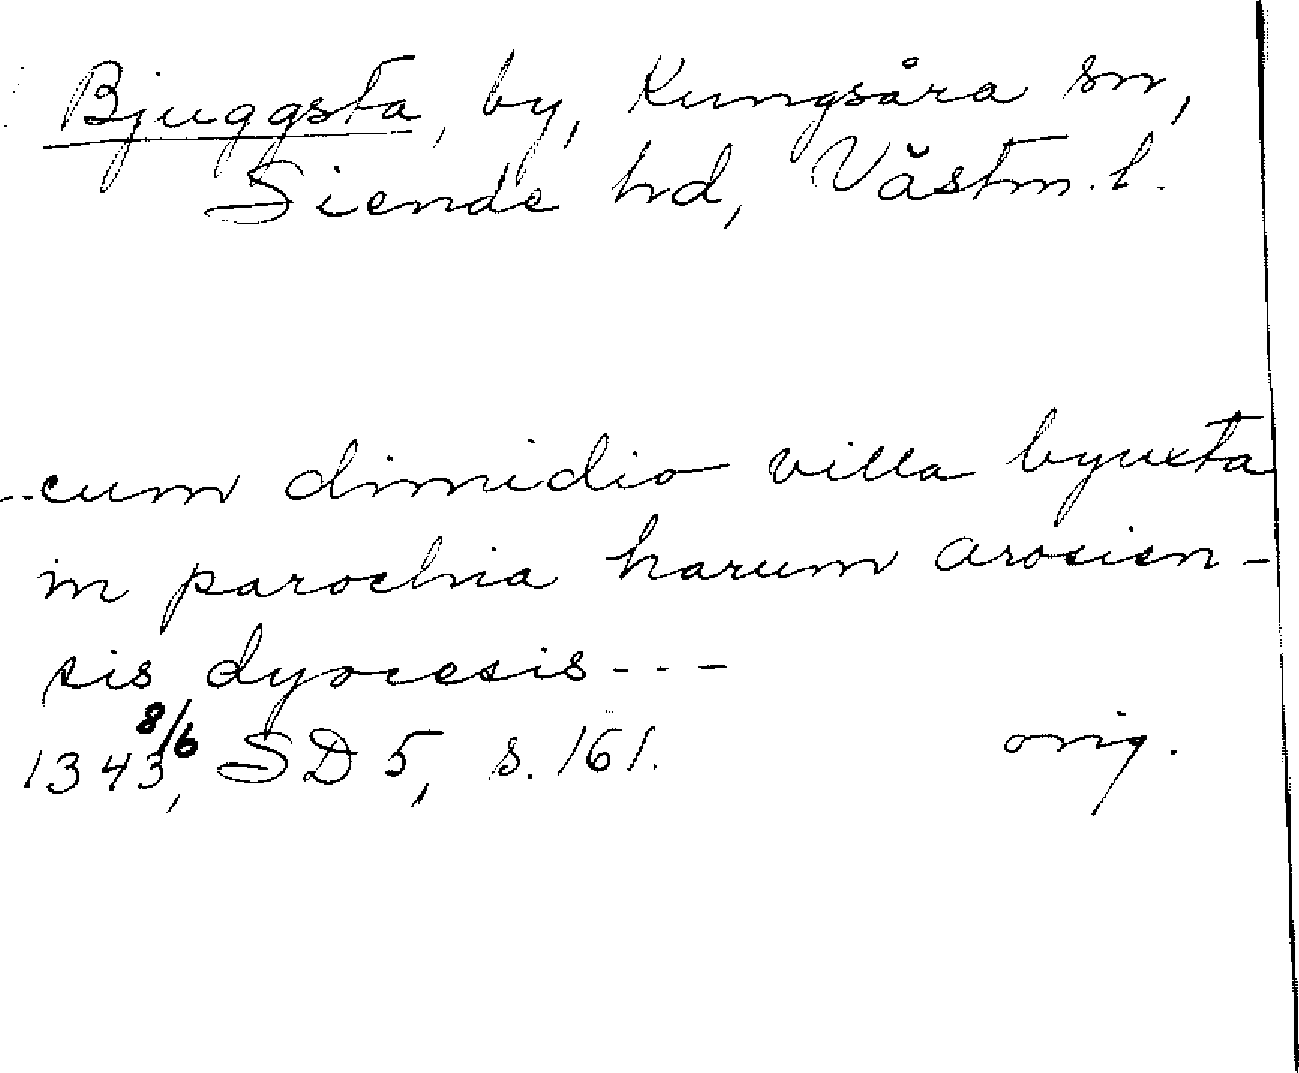 Bjuggsta, by, Kungsåra sn,
Siende hd, Västm. l.
--cum dimidio villa byuxta
in parochia harum arosien-
sis dyocesis---
1343 8/6, SD 5, s. 161. orig.